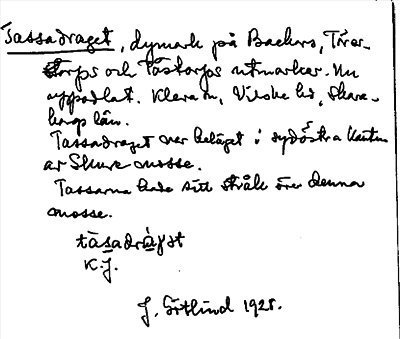 Tassadraget, dymark på Backers, Töres-
torps och Tåstorps utmarker. Nu
uppodlat. Kleva sn, Vilske hd, Skara-
borgs län.
Tassadraget var beläget i sydöstra kanten
av Skure mosse.
Tassarna hade sitt stråk över denna
mosse.
tàsadràgət
K.J.
J. Götlind 1928.